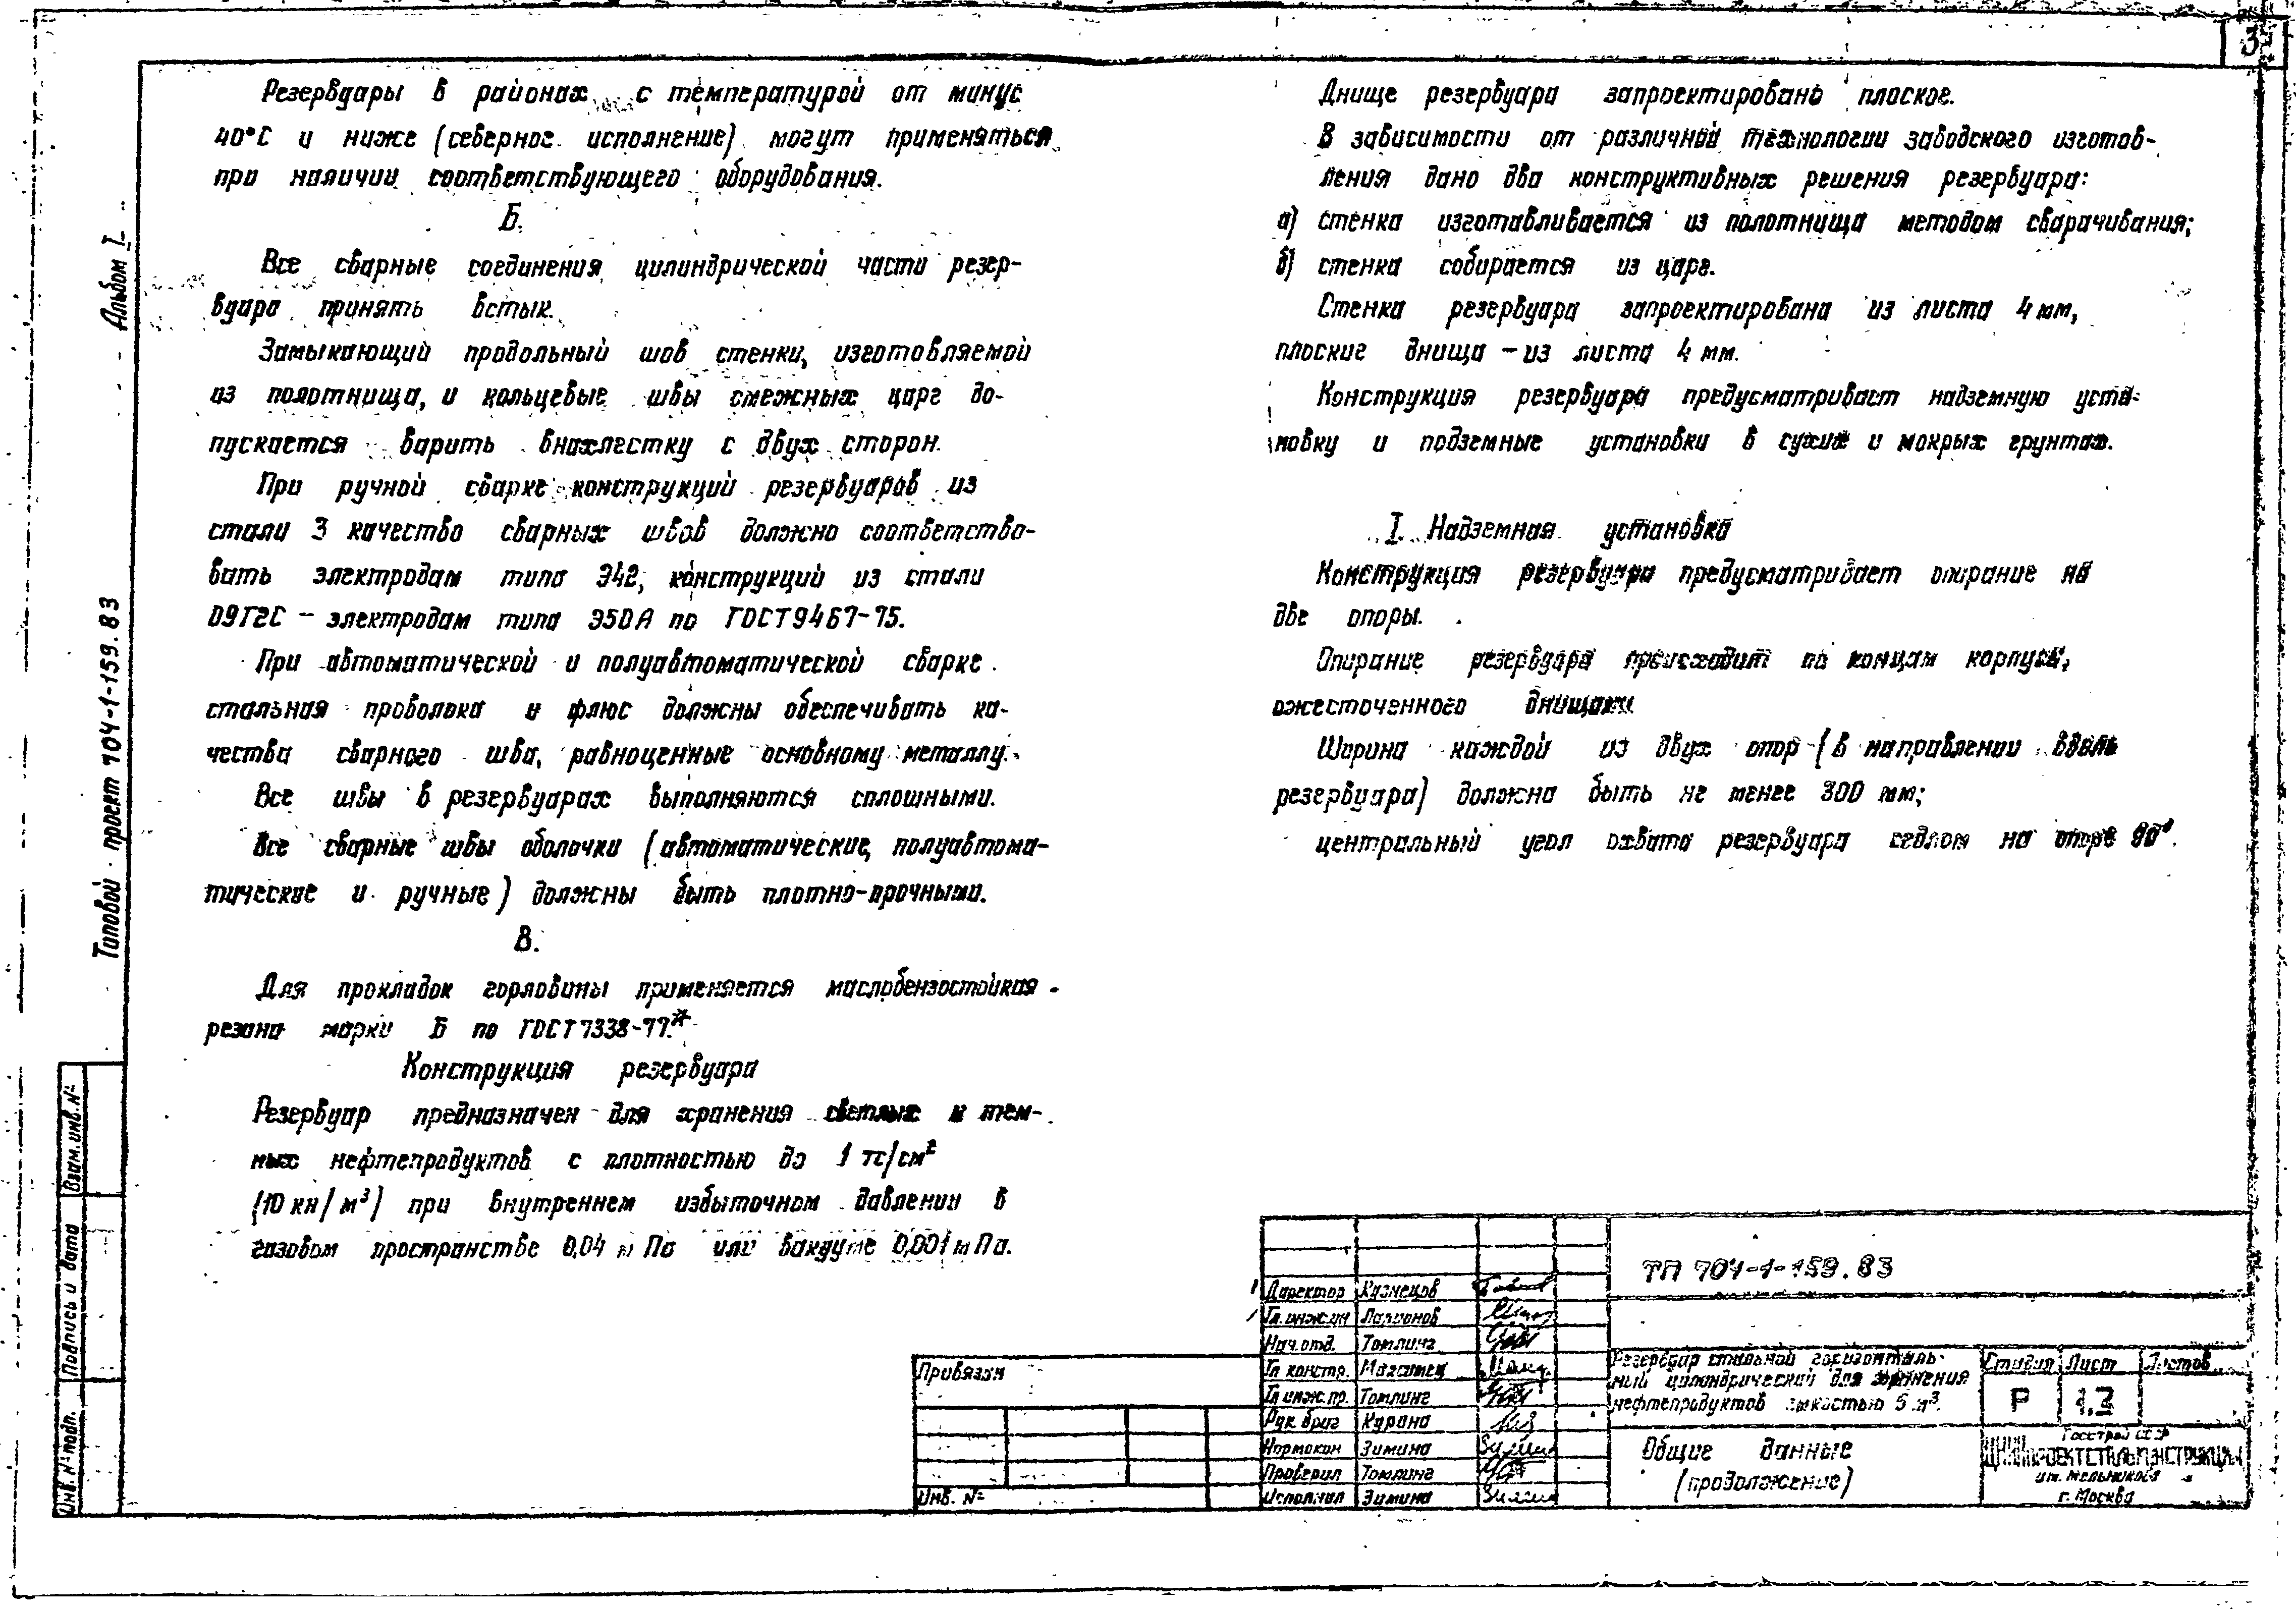 3
Резервуары в районах с температурой от минус
40°С и ниже (северное исполнение) могут применяться
при наличии соответствующего оборудования.
Б.
Все сварные соединения цилиндрической части резер-
вуара принять встык.
Замыкающий продольный шов стенки, изготовляемой
из полотнища, и кольцевые швы смежных царг до-
пускается варить внахлестку с двух сторон.
При ручной сварке конструкций резервуаров из
стали 3 качество сварных швов должно соответство-
вать электродам типа Э42, конструкций из стали
09Г2С – электродам типа Э50А по ГОСТ 9467-75.
При автоматической и полуавтоматической сварке
стальная проволока и флюс должны обеспечивать ка-
чества сварного шва, равноценные основному металлу.
Все швы в резервуарах выполняются сплошными.
Все сварные швы оболочки (автоматические, полуавтома-
тические и ручные) должны быть плотно-прочными.
В.
Для прокладок горловины применяется маслобензостойкая
резина марки Б по ГОСТ 7338-77.*
Конструкция резервуара
Резервуар предназначен для хранения светлых и тем-
ных нефтепродуктов с плотностью до 1 тс/см²
(10 кн/м³) при внутреннем избыточном давлении в
газовом пространстве 0,04 мПа или вакууме 0,001 мПа.
Днище резервуара запроектировано плоское.
В зависимости от различной технологии заводского изготов-
ления дано два конструктивных решения резервуара:
а) стенка изготавливается из полотнища методом сварачивания;
б) стенка собирается из царг.
Стенка резервуара запроектирована из листа 4 мм,
плоские днища – из листа 4 мм.
Конструкция резервуара предусматривает надземную уста-
новку и подземные установки в сухих и мокрых грунтах.
I. Надземная установка
Конструкция резервуара предусматривает опирание на
две опоры.
Опирание резервуара происходит по концам корпуса,
ожесточенного днищами.
Ширина каждой из двух опор (в направлении вдоль
резервуара) должна быть не менее 300 мм;
центральный угол охвата резервуара седлом на опоре 90°.
Альбом I
Типовой проект 704-1-159.83
Взам.инв.№
Подпись и дата
Инв.№ подл.
Привязан
Инв. №
Директор Кузнецов
Гл.инж.ин Ларионов
Нач.отд. Томлинг
Гл констр.
Гл инж.пр. Томлинг
Рук бриг Курана
Нормокон Зимина
Проверил Томлинг
Исполнил Зимина
ТП 704-1-159.83
Резервуар стальной горизонталь-
ный цилиндрический для хранения
нефтепродуктов емкостью 5 м³.
Стадия Лист Листов
Р 1.3
Общие данные
(продолжение)
Госстрой СССР
ЦНИИПРОЕКТСТАЛЬКОНСТРУКЦИЯ
им. Мельникова
г. Москва